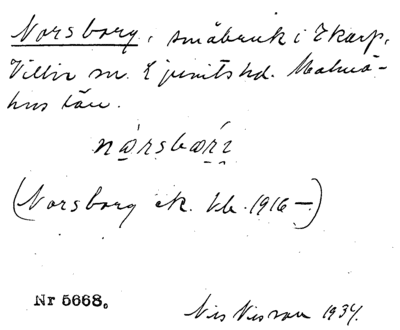 Norsborg, småbruk i Ekarp,
Villie sn. Ljunits hd. Malmö-
hus län.
nórsbóri
(Norsborg ek. kb. 1916—)
Nr 5668.
Nils Nilsson 1934.